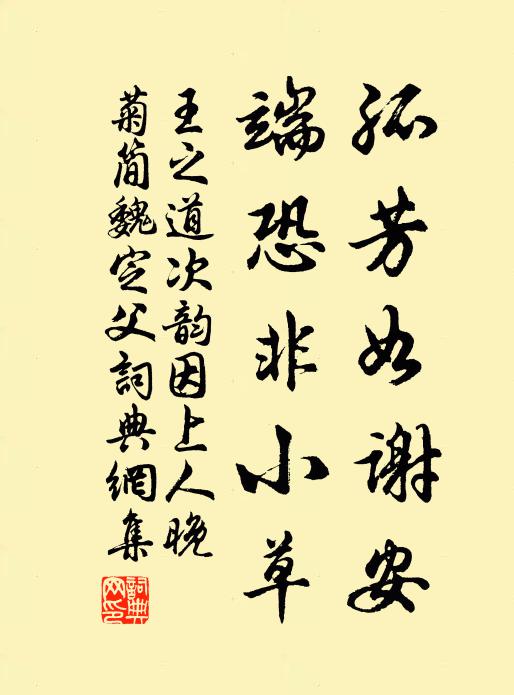 孤芳如谢安
端恐非小草
王之道次韵因上人晚
菊简魏定父詞典網集
詞典网印